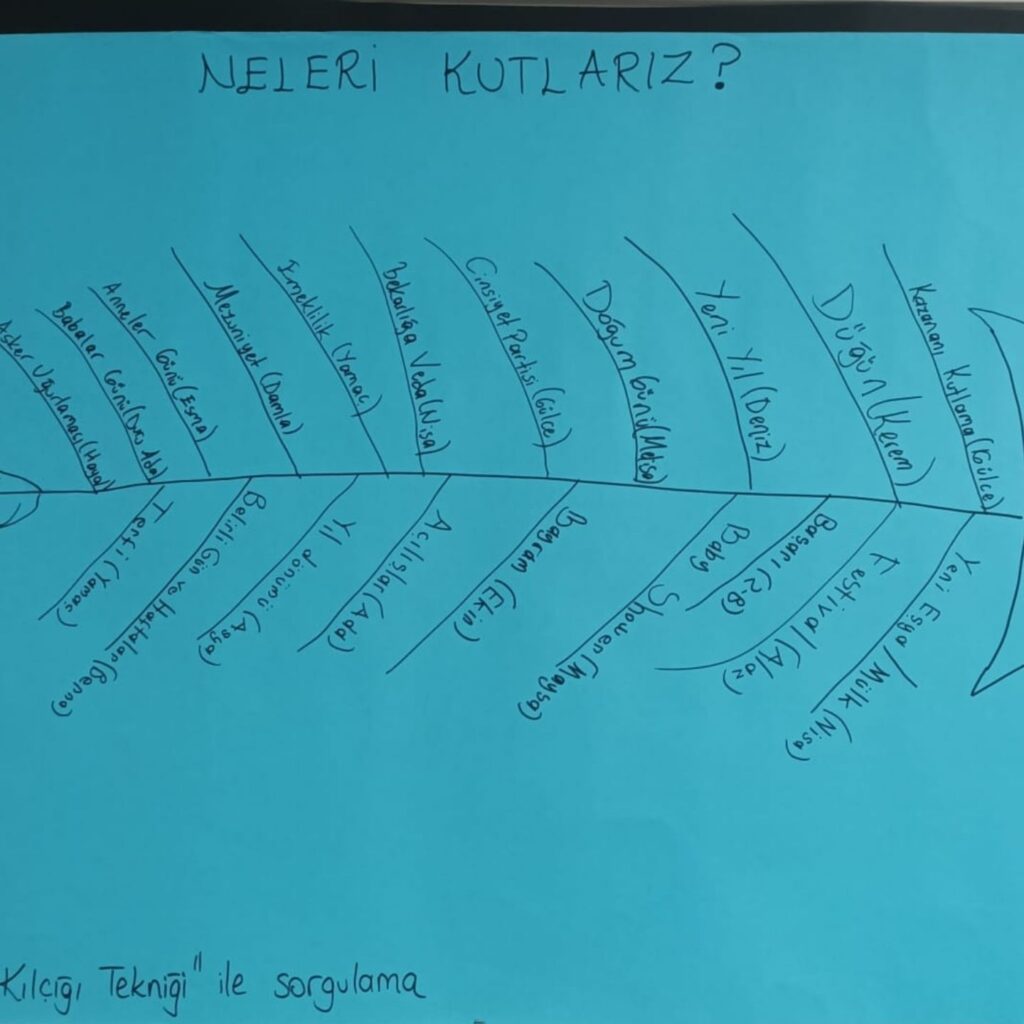 NELERİ KUTLARIZ?
Asker Uğurlaması (Haya)
Babalar Günü (Duru Ada)
Anneler Günü (Esma)
Mezuniyet (Damla)
Emeklilik (Yamaç)
bekarlığa Veda (Nisa)
Cinsiyet Partisi (Gülce)
Doğum Günü (Metisa)
Yeni Yıl (Deniz)
Düğün (Kerem)
Kazananı Kutlama (Gülce)
Terfi (Yamaç)
Belirli Gün ve Haftalar (Berra)
Yıl dönümü (Asya)
Açılışlar (Ada)
Bayram (Ekin)
Baby Shower (Maysa)
Başarı (2-B)
Festival (Alaz)
Yeni Eşya / Mülk (Nisa)
Kılçığı Tekniği" ile sorgulama